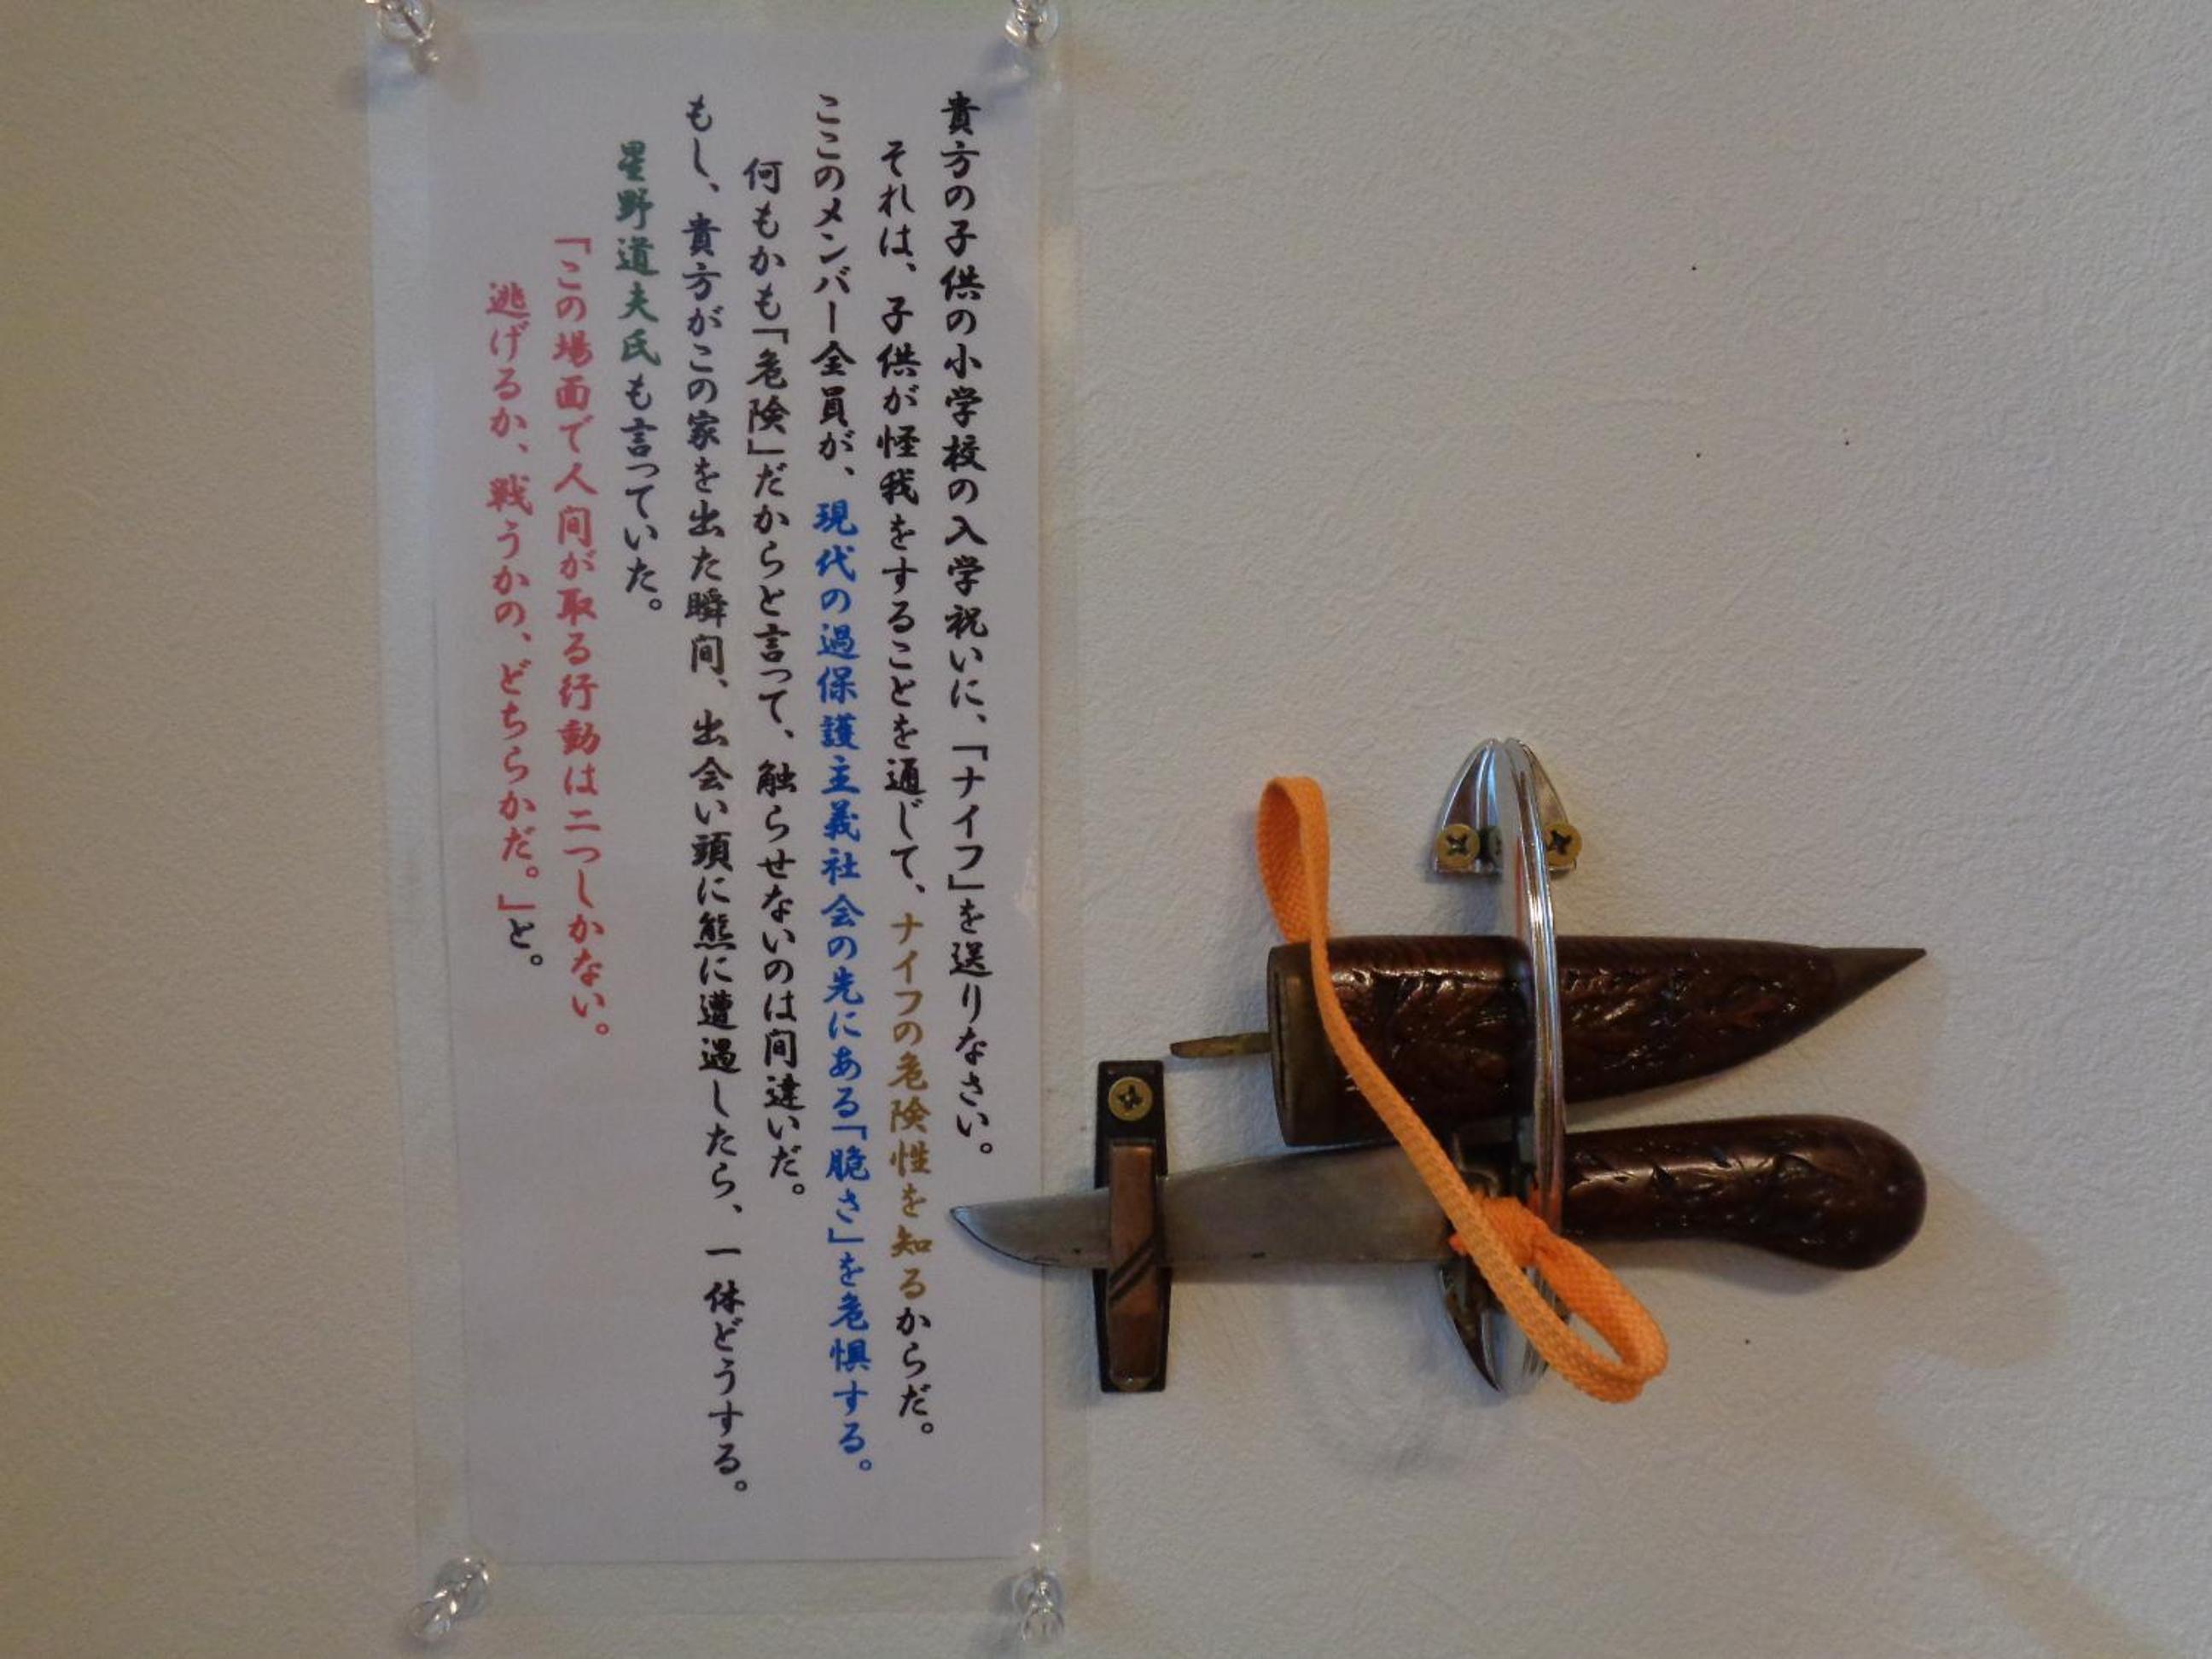 貴方の子供の小学校の入学祝いに、「ナイフ」を送りなさい。
それは、子供が怪我をすることを通じて、ナイフの危険性を知るからだ。
ここのメンバー全員が、現代の過保護主義社会の先にある「脆さ」を危惧する。
何もかも「危険」だからと言って、触らせないのは間違いだ。
もし、貴方がこの家を出た瞬間、出会い頭に熊に遭遇したら、一体どうする。
星野道夫氏も言っていた。
「この場面で人間が取る行動は二つしかない。
逃げるか、戦うかの、どちらかだ。」と。